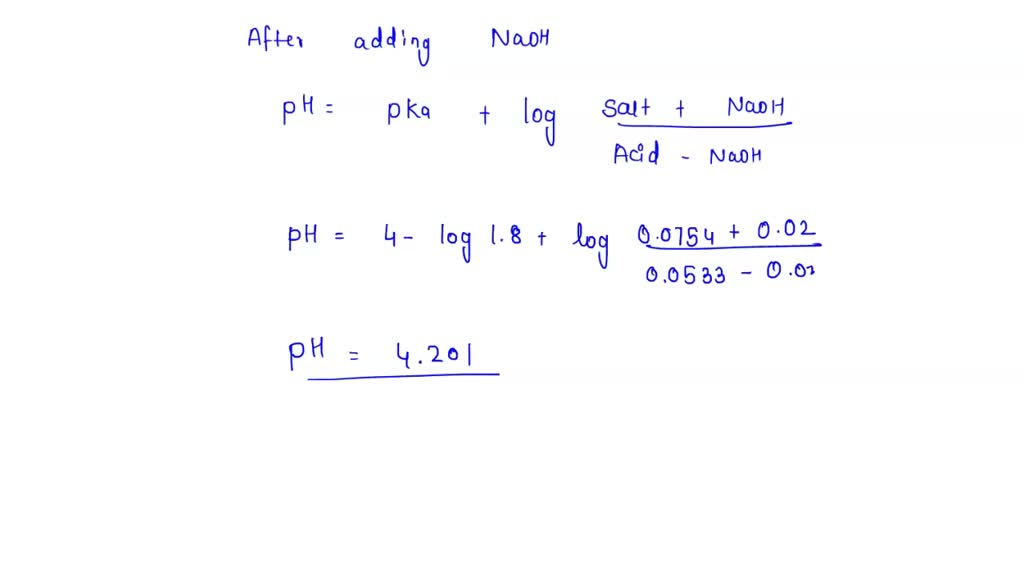 After adding NaOH
pH = pka + log Salt + NaOH
Acid - NaOH
pH = 4 - log 1.8 + log 0.0754 + 0.02
0.0533 -
pH = 4.201